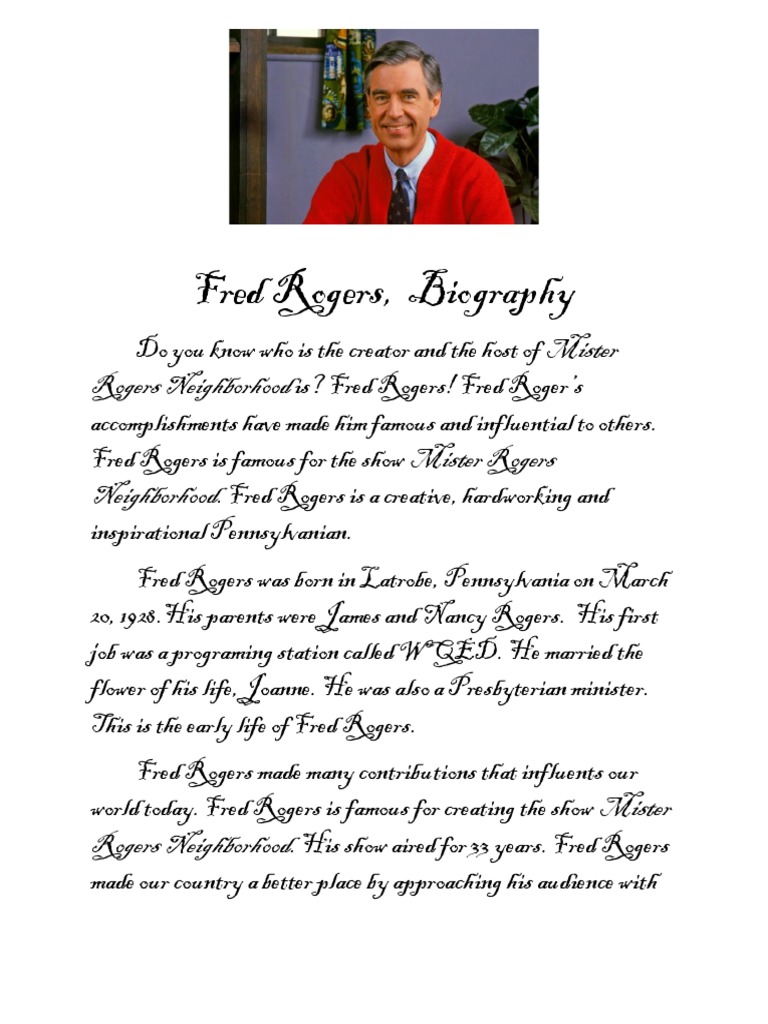 Fred Rogers, Biography
Do you know who is the creator and the host of Mister
Rogers Neighborhood is? Fred Rogers! Fred Roger's
accomplishments have made him famous and influential to others.
Fred Rogers is famous for the show Mister Rogers
Neighborhood. Fred Rogers is a creative, hardworking and
inspirational Pennsylvanian.
Fred Rogers was born in Latrobe, Pennsylvania on March
20, 1928. His parents were James and Nancy Rogers. His first
job was a programing station called WQED. He married the
flower of his life, Joanne. He was also a Presbyterian minister.
This is the early life of Fred Rogers.
Fred Rogers made many contributions that influents our
world today. Fred Rogers is famous for creating the show Mister
Rogers Neighborhood. His show aired for 33 years. Fred Rogers
made our country a better place by approaching his audience with